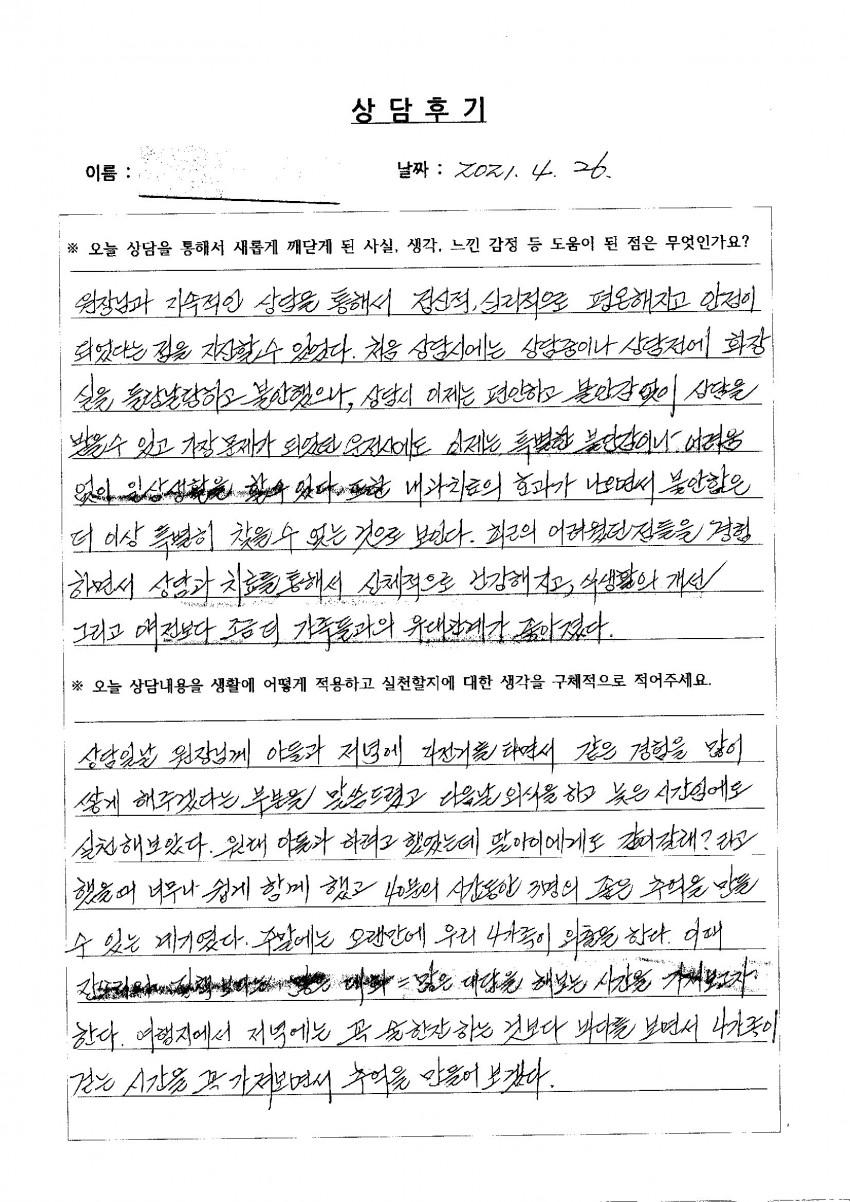 상담후기
이름 :
날짜 : 2021. 4. 26.
※ 오늘 상담을 통해서 새롭게 깨닫게 된 사실, 생각, 느낀 감정 등 도움이 된 점은 무엇인가요?
원장님과 지속적인 상담을 통해서 정신적, 심리적으로 평온해지고 안정이
되었다는 점을 자신할 수 있었다. 처음 상담시에는 상담중이나 상담전에 화장
실을 들랑날랑하고 불안했으나, 상담시 이제는 편안하고 불안감 없이 상담을
받을 수 있고 가장 문제가 되었던 운전시에도 이제는 특별한 불안감이나 어려움
없이 일상생활을 할 수 있다. 또한 내과치료의 효과가 나오면서 불안함은
더 이상 특별히 찾을 수 없는 것으로 보인다. 최근의 어려웠던 점들을 경험
하면서 상담과 치료를 통해서 신체적으로 건강해지고, 식생활의 개선
그리고 예전보다 조금 더 가족들과의 유대관계가 좋아졌다.
※ 오늘 상담내용을 생활에 어떻게 적용하고 실천할지에 대한 생각을 구체적으로 적어주세요.
상담일날 원장님께 아들과 저녁에 자전거를 타면서 같은 경험을 많이
쌓게 해주겠다는 부분을 말씀드렸고 다음날 외식을 하고 늦은 시간임에도
실천해보았다. 원래 아들과 하려고 했었는데 딸아이에게도 같이갈래? 라고
했을때 너무나 쉽게 함께 했고 40분의 시간동안 3명의 좋은 추억을 만들
수 있는 계기였다. 주말에는 오랜만에 우리 4가족이 외출을 한다. 이때
잔소리와 질책보다는 많은 대화 = 많은 대답을 해보는 시간을 가져보고자
한다. 여행지에서 저녁에는 꼭 술한잔 하는 것보다 바다를 보면서 4가족이
걷는 시간을 꼭 가져보면서 추억을 만들어 보겠다.